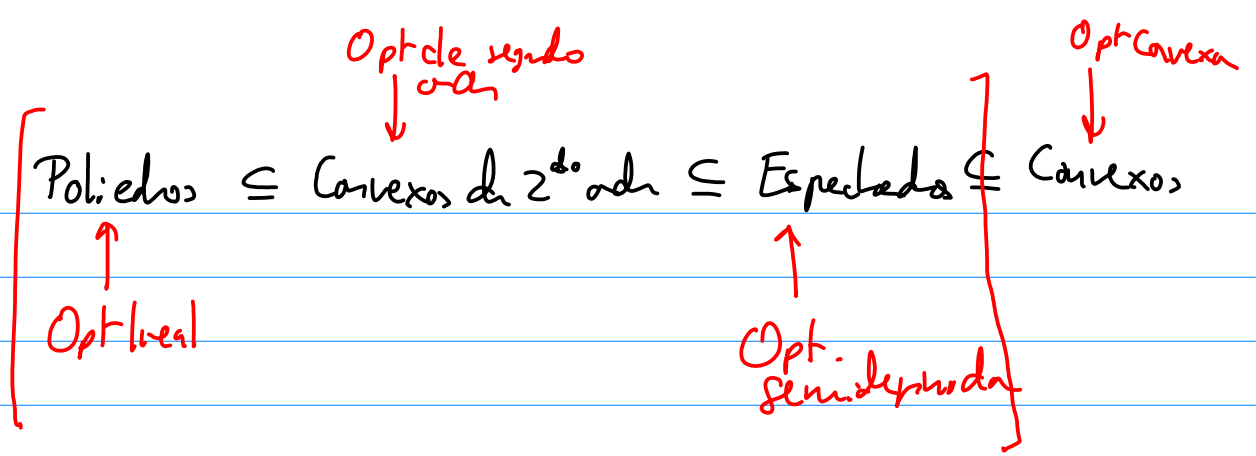 Opt de segundo
orden
Opt Convexa
Poliedros ⊆ Convexos de 2do orden ⊆ Espectraedros ⊆ Convexos
Opt lineal
Opt.
semidefinida